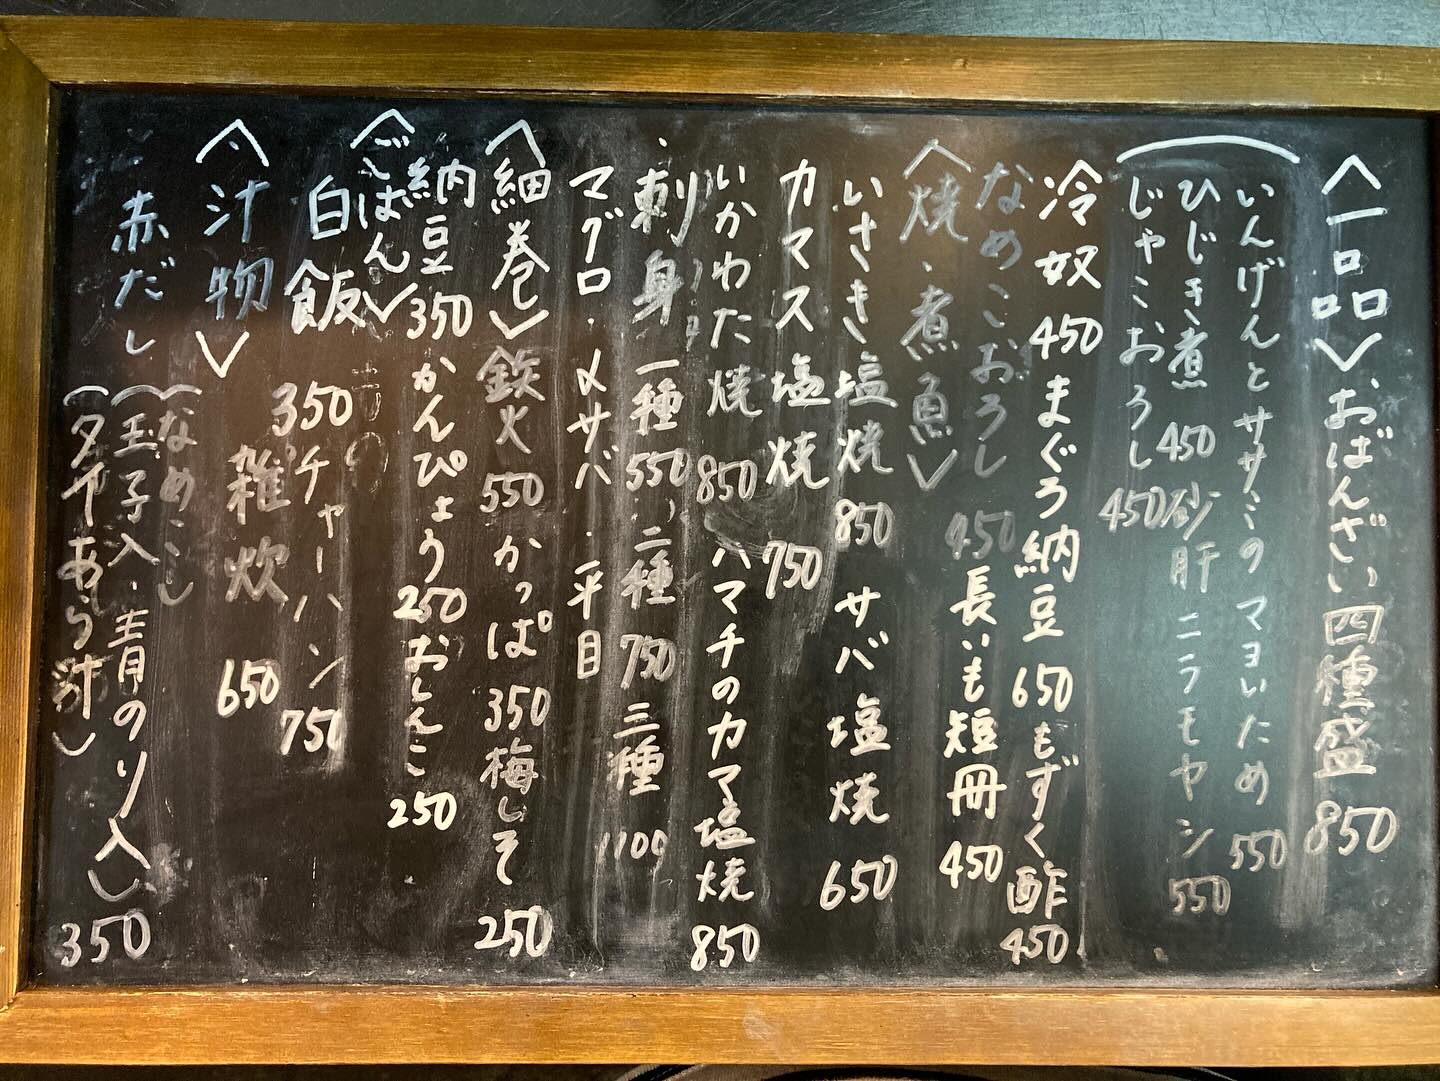 〈一品〉おばんざい四種盛 850
いんげんとササミのマヨいため 550
ひじき煮 450 砂肝ニラモヤシ 550
じゃこおろし 450
冷奴 450 まぐろ納豆 650 もずく酢 450
なめこおろし 450 長いも短冊 450
〈焼・煮魚〉
いさき塩焼 850 サバ塩焼 650
カマス塩焼 750
いかわた焼 850 ハマチのカマ塩焼 850
・刺身 一種 550 二種 750 三種 1100
マグロ・〆サバ・平目
〈細巻〉鉄火 550 かっぱ 350 梅しそ 250
納豆 350 かんぴょう 250 おしんこ 250
〈ごはん〉
白飯 350 チャーハン 750
雑炊 650
〈汁物〉
赤だし
(なめこし
(玉子入・青のり入)
(タイあら汁) 350